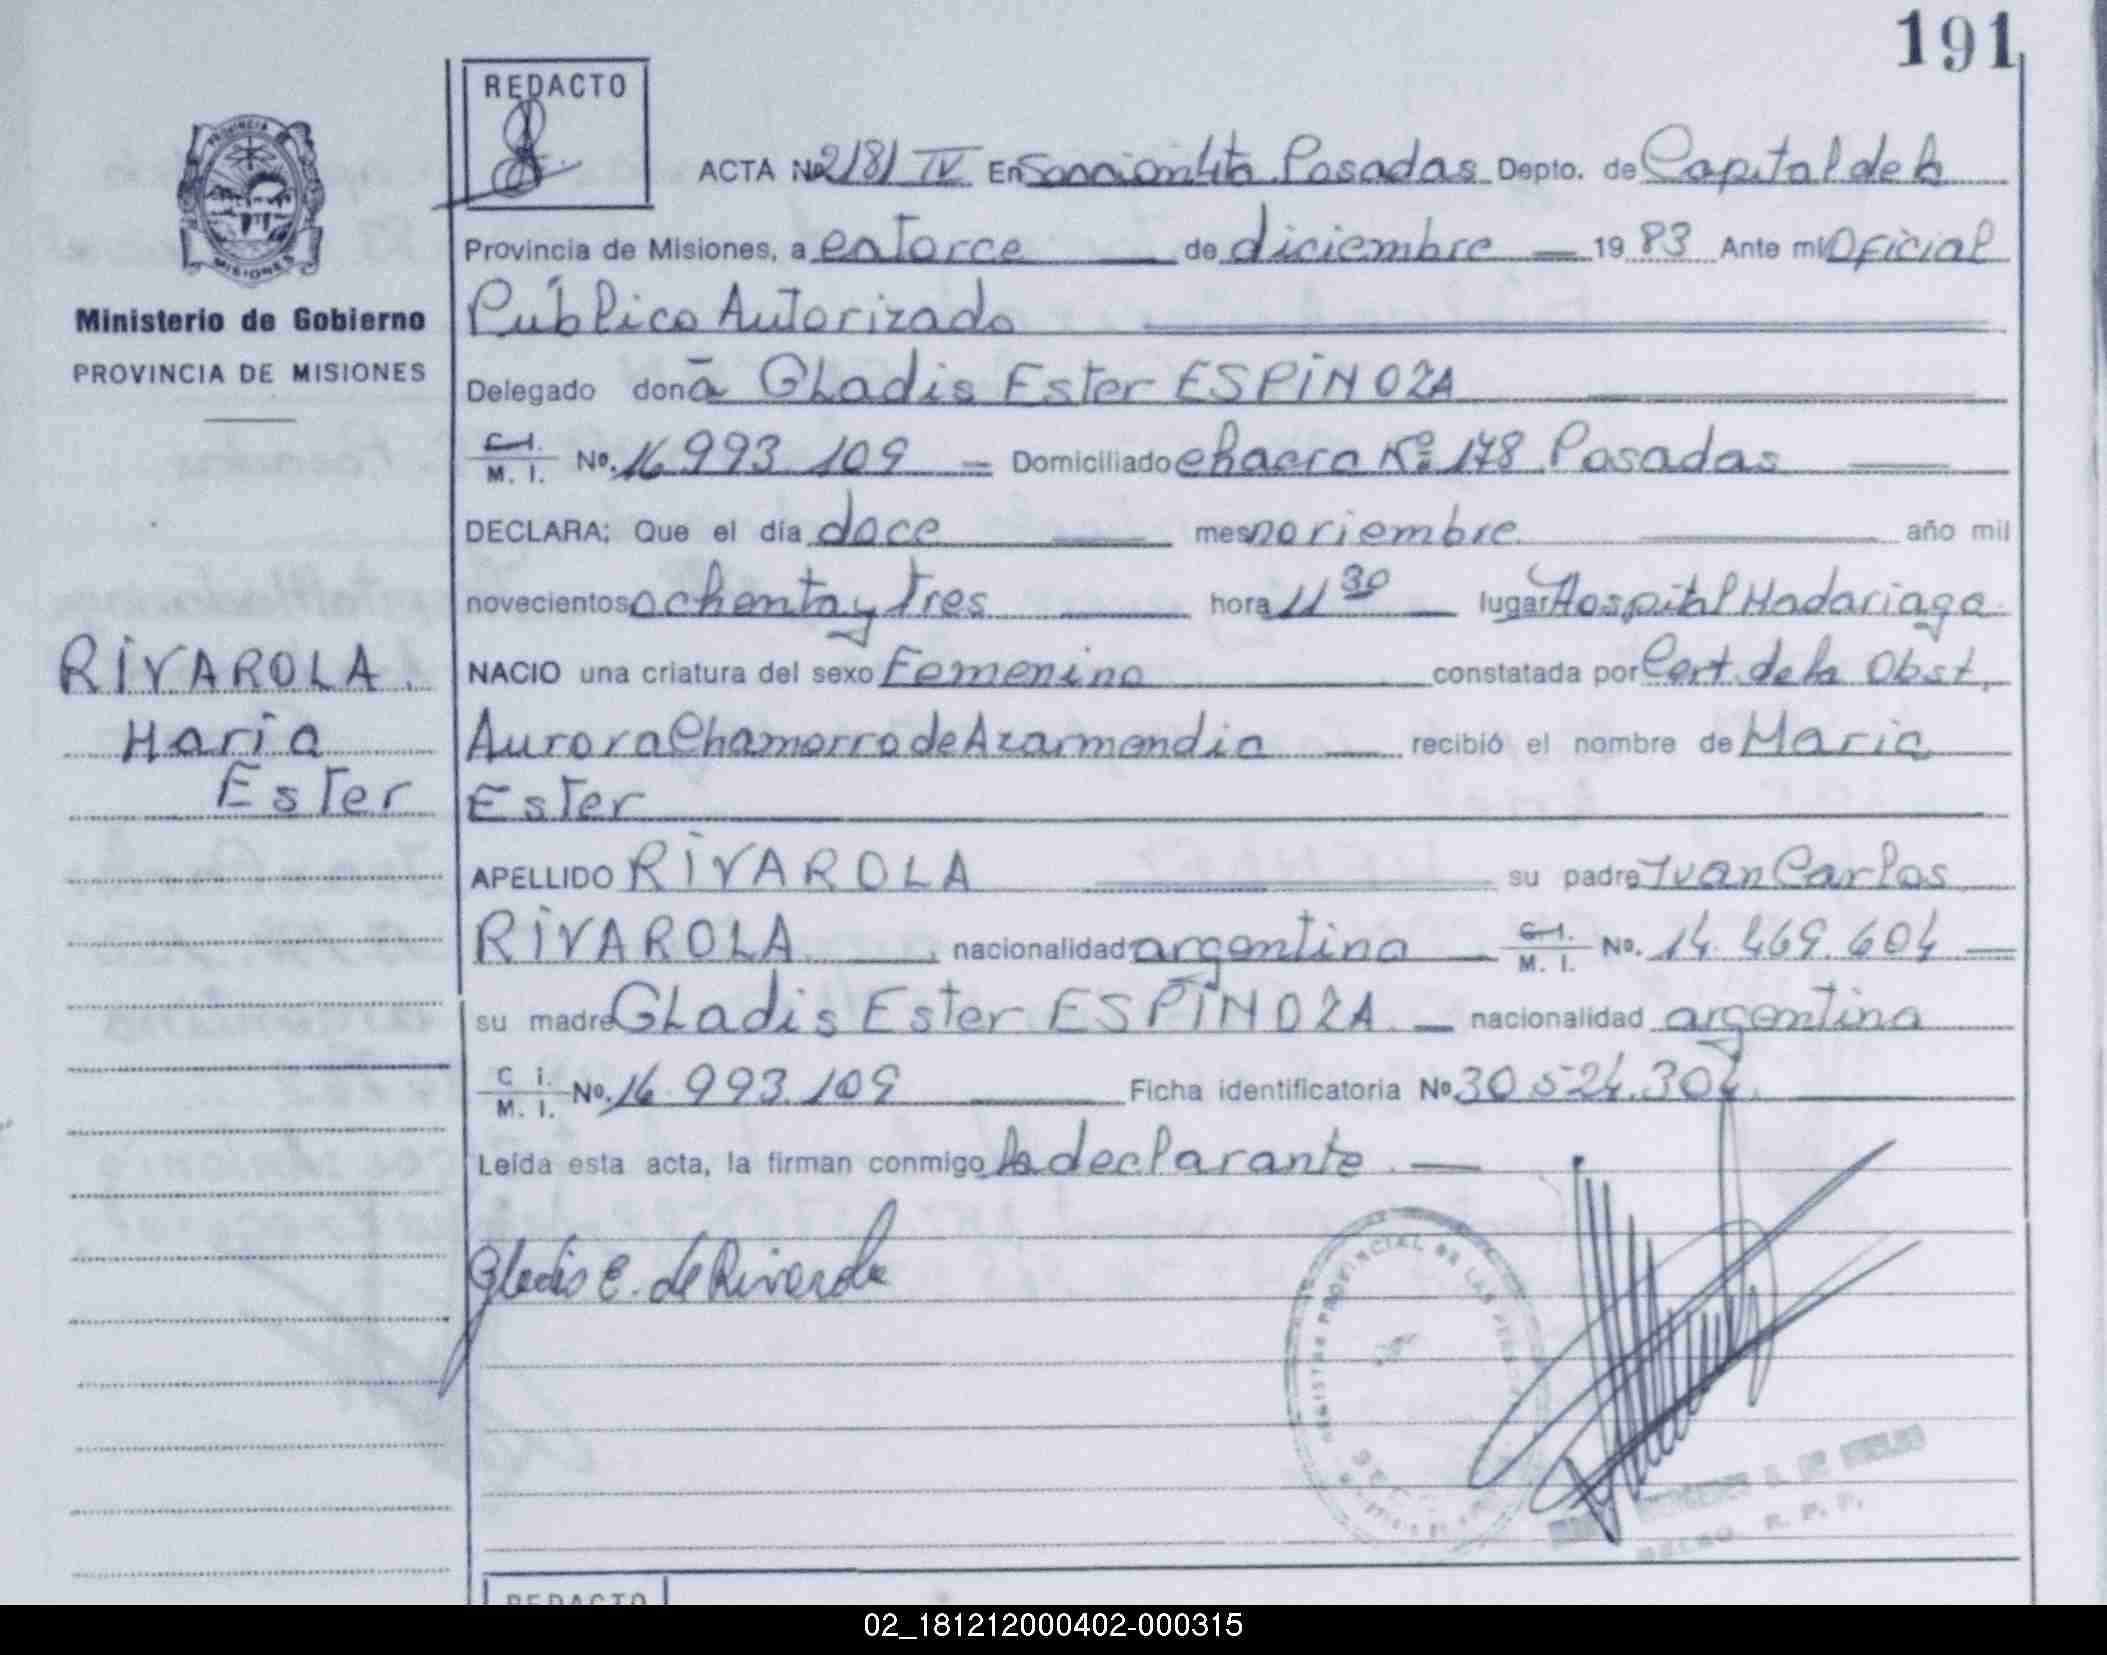 191
REDACTO
PROVINCIA
MISIONES
Ministerio de Gobierno
PROVINCIA DE MISIONES
ACTA No 2181 IV En Sección 4ta Posadas Depto. de Capital de la
Provincia de Misiones, a catorce de diciembre 19 83 Ante mi Oficial
Público Autorizado
Delegado doña Gladis Ester ESPINOZA
C.I. M. I. No. 16 993 109 Domiciliado chacra Nº 178 Posadas
DECLARA: Que el día doce mes noviembre año mil
novecientos ochenta y tres hora 11 30 lugar Hospital Madariaga
NACIO una criatura del sexo Femenino constatada por Cert. de la Obst.
Aurora Chamorro de Azarmendia recibió el nombre de Maria
Ester
APELLIDO RIVAROLA su padre Juan Carlos
RIVAROLA nacionalidad argentina C.I. M. I. No. 14.469.604
su madre Gladis Ester ESPINOZA nacionalidad argentina
C i. M. I. No. 16 993.109 Ficha identificatoria No 30 524.304
Leída esta acta, la firman conmigo la declarante.
RIVAROLA.
Maria
Ester
Gladis E. de Rivarola
REGISTRO PROVINCIAL DE LAS
R. P. P.
REDACTO
02_181212000402-000315